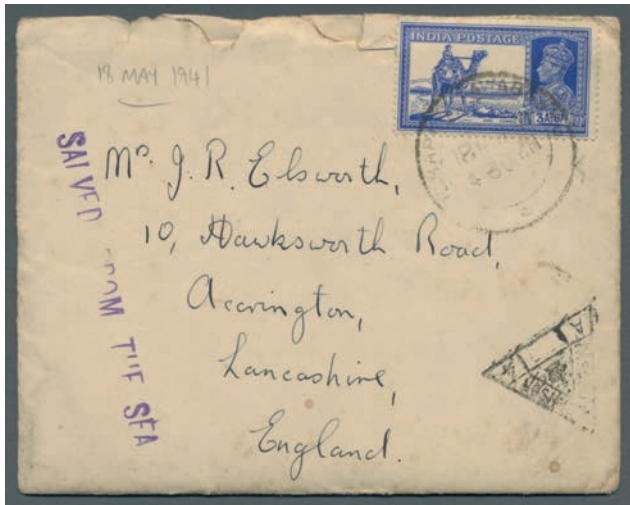 18 MAY 1941
INDIA POSTAGE
3 AS
SALVED FROM THE SEA
Mrs. J. R. Elsworth,
10, Hawksworth Road,
Accrington,
Lancashire,
England.